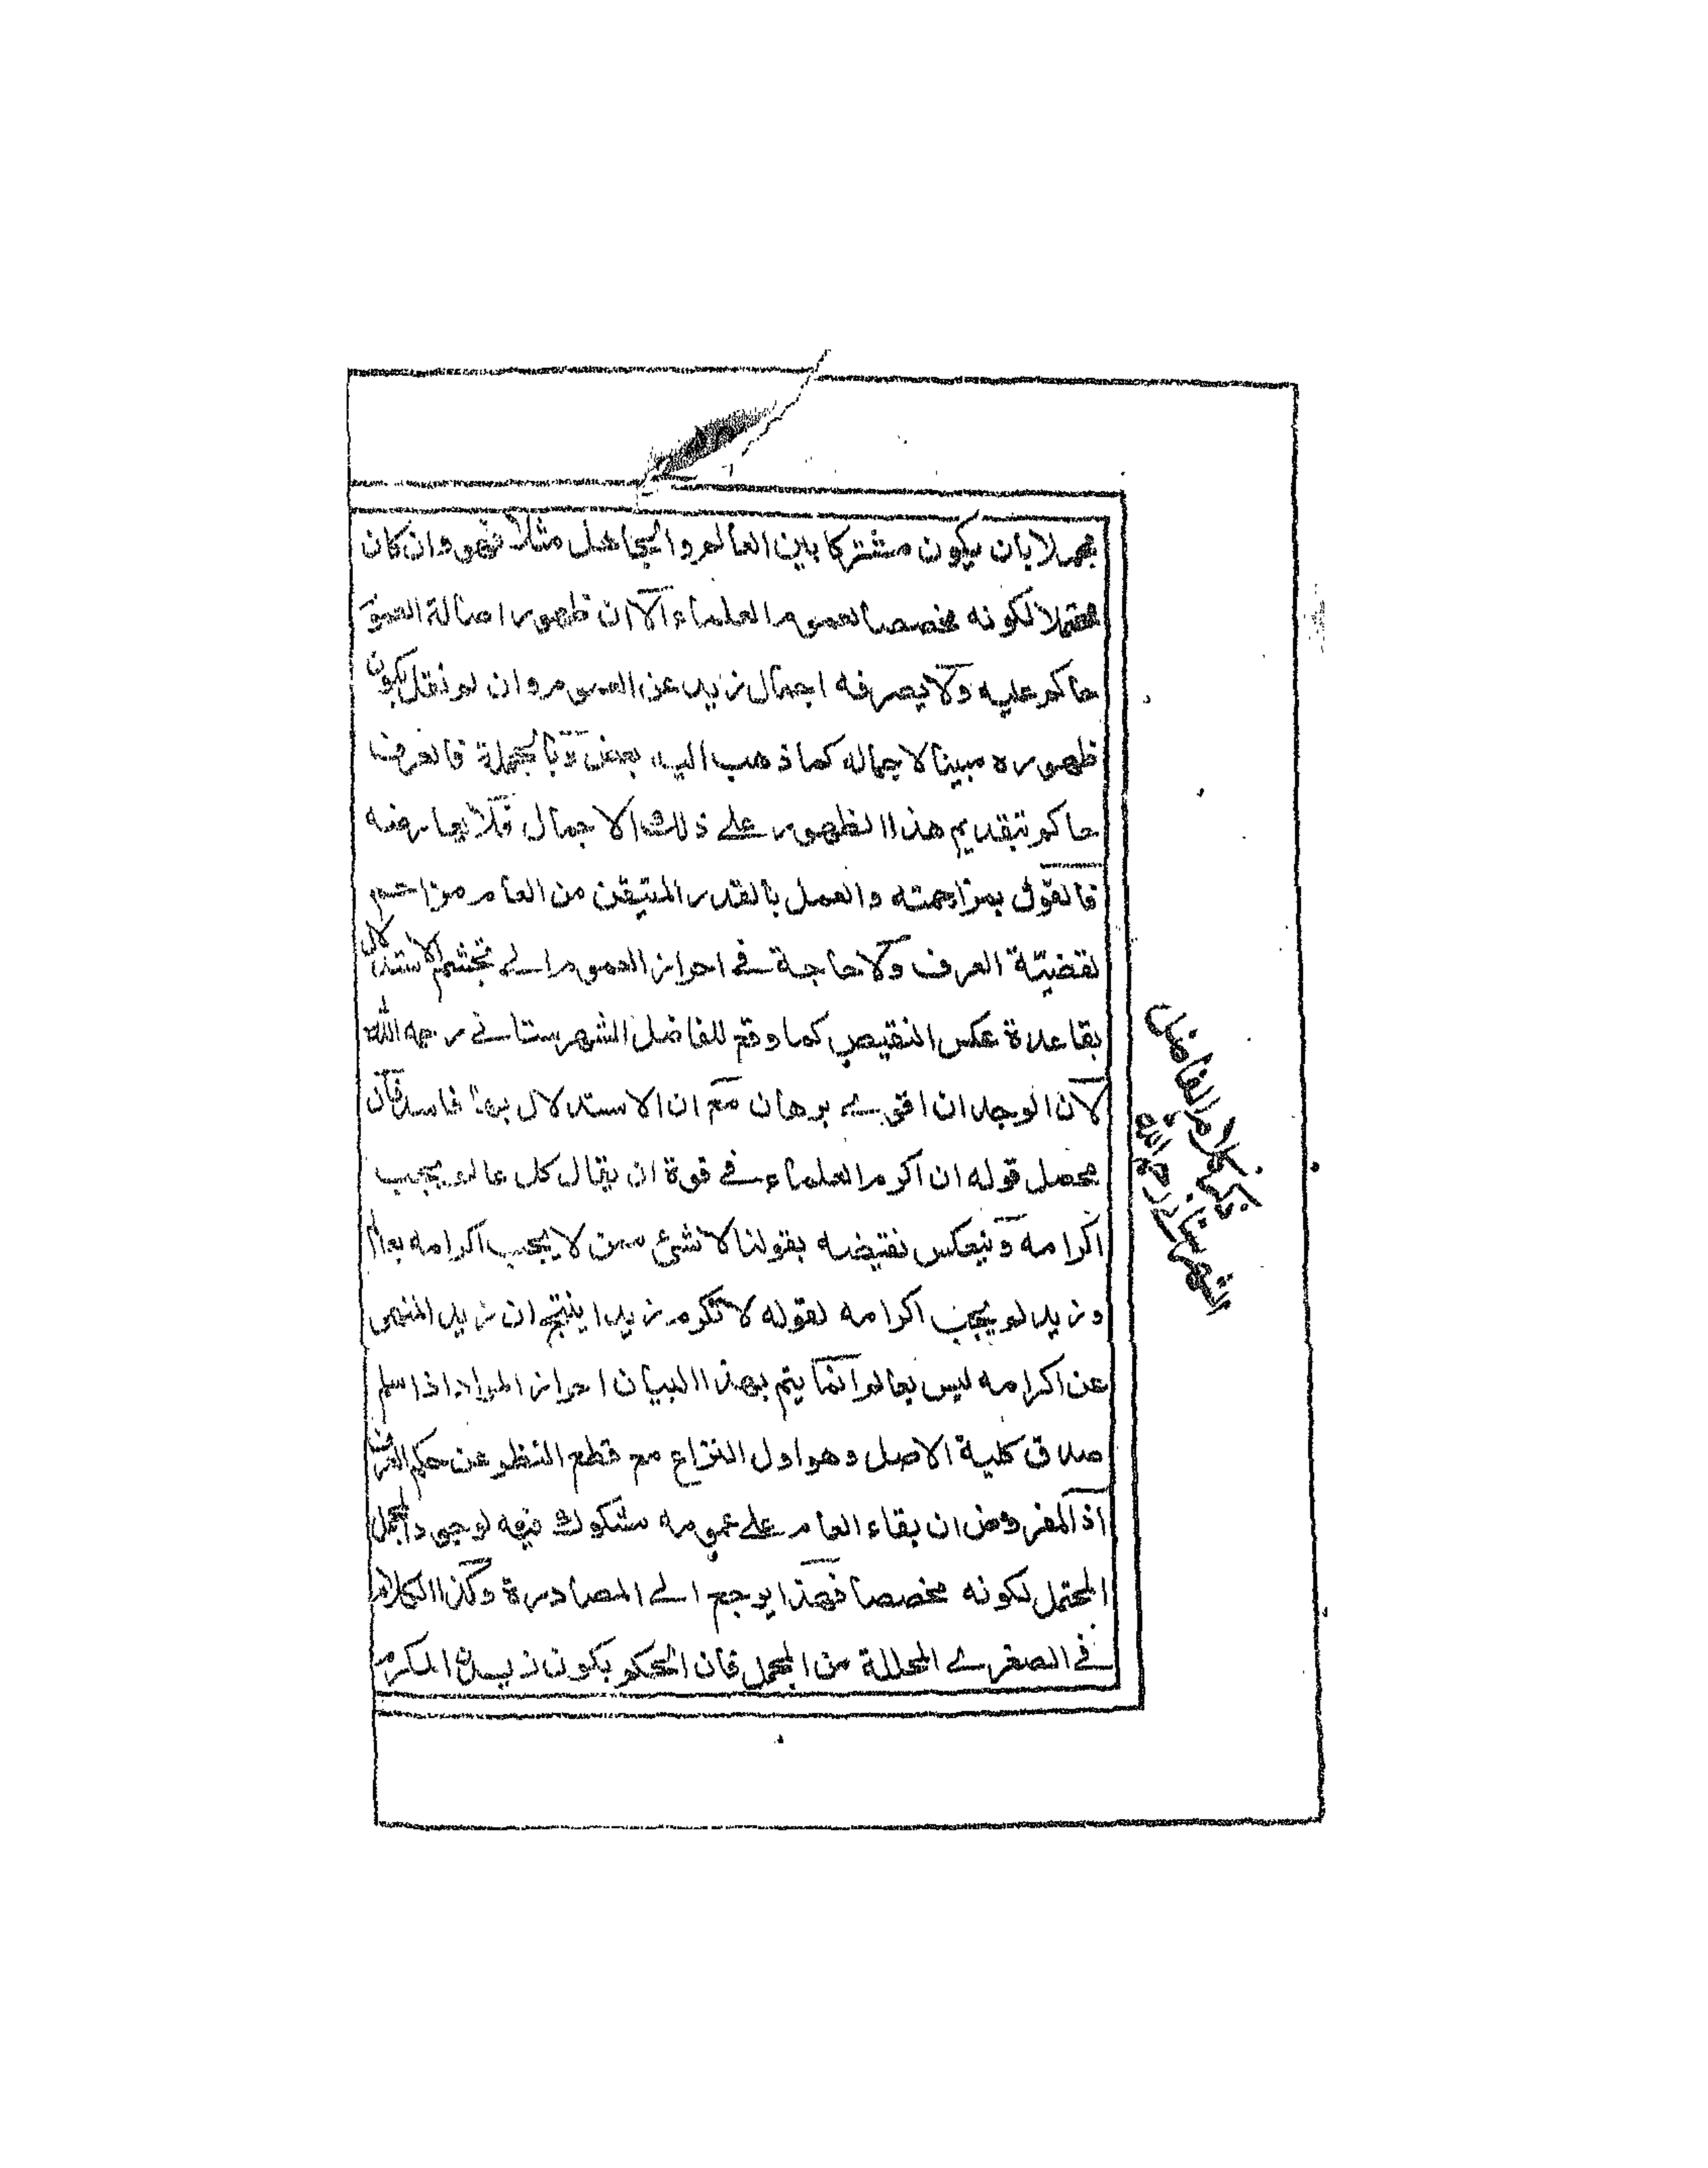 مجملا بان يكون مشتركا بين العالم والجاهل مثلا فهو وان كان
محتملا لكونه مخصصا لعموم العلماء الا ان ظهور اصالة العموم
حاكم عليه ولا يصرفه اجمال زيد عن العموم وان لم نقل بكون
ظهوره مبينا لاجماله كما ذهب اليه بعض وبالجملة فالعرف
حاكم بتقديم هذا الظهور على ذلك الاجمال فلا يعارضه
فالقول بمزاحمته والعمل بالقدر المتيقن من العام مزاحم
لقضية العرف ولا حاجة في احراز العموم الى تجشم الاستدلال
بقاعدة عكس النقيض كما وقع للفاضل الشهرستاني رحمه الله
لان الوجدان اقوى برهان مع ان الاستدلال بها فاسد فان
محصل قوله ان اكرم العلماء في قوة ان يقال كل عالم يجب
اكرامه وينعكس نقيضه بقولنا لا شئ ممن لا يجب اكرامه بعالم
وزيد لم يجب اكرامه لقوله لا تكرم زيدا ينتج ان زيد المنهى
عن اكرامه ليس بعالم وانما يتم بهذا البيان احراز المراد اذا سلم
صدق كلية الاصل وهو اول النزاع مع قطع النظر عن حكم العرف
اذ المفروض ان بقاء العام على عمومه مشكوك فيه لوجود المجمل
المحتمل لكونه مخصصا فهذا يرجع الى المصادرة وكذا الكلام
في الصغرى المحللة من المجمل فان الحكم بكون زيد المكرم
كلام الفاضل
الشهرستاني رحمه الله